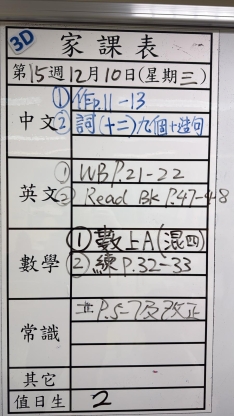 3D
家課表
第15週12月10日(星期三)
中文
①作p.11-13
②詞(十三)九個+造句
英文
①WB P.21-22
②Read Bk P.47-48
數學
①數上A(混四)
②練P.32-33
常識
P.5-7及改正
其它
值日生 2